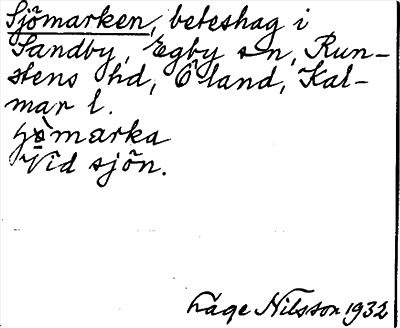 Sjömarken, beteshag i
Sandby, Egby sn, Run-
stens hd, Öland, Kal-
mar l.
marka
Vid sjön.
Tage Nilsson 1932